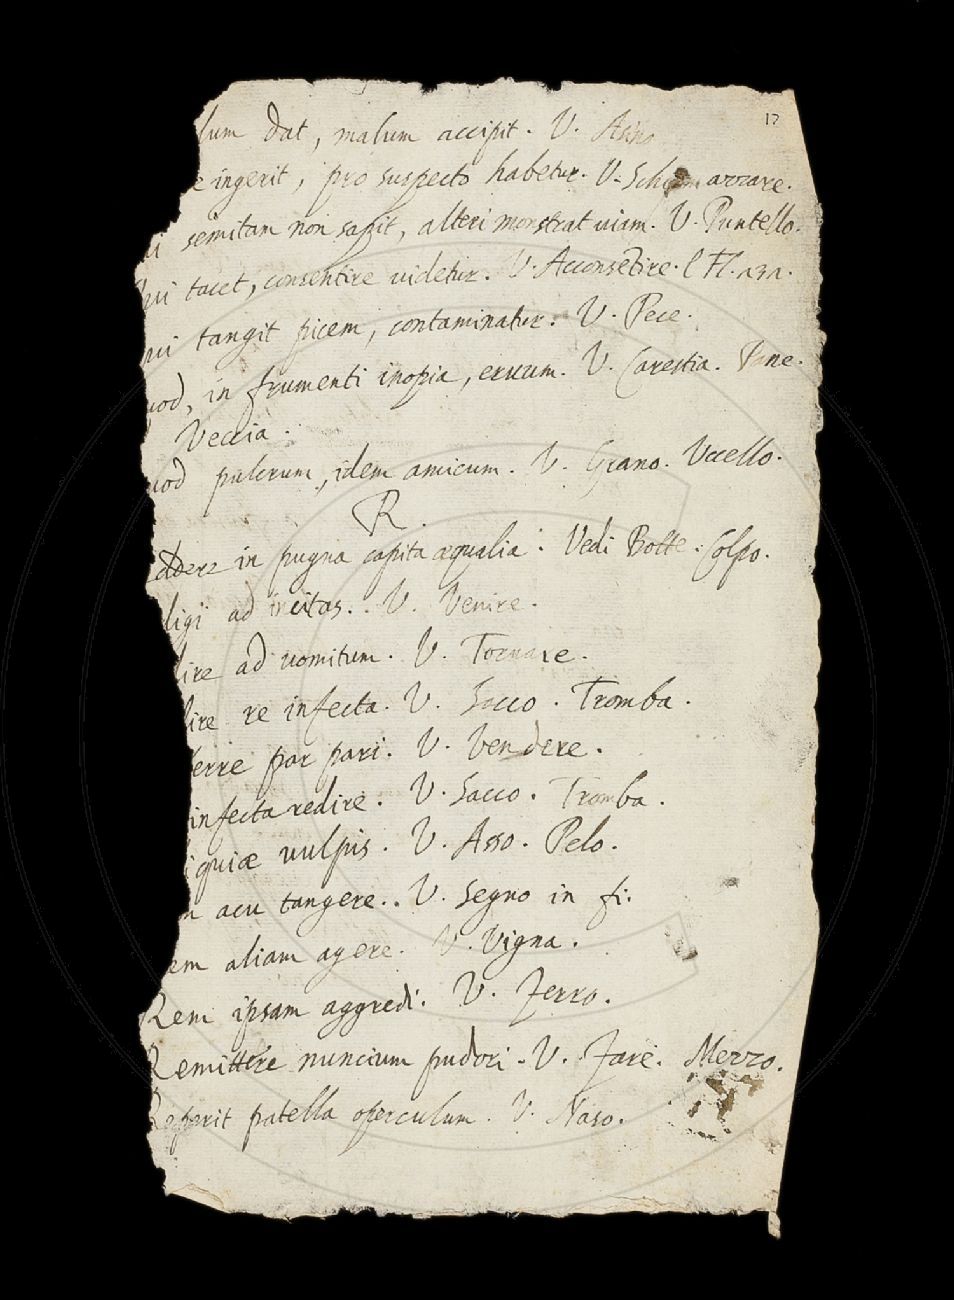 17
lum dat, malum accipit. V. Asino
e ingerit, pro suspecto habetur. V. Schiamazzare.
ui semitam non sapit, alteri monstrat uiam. V. Puntello.
hui tacet, consentire uidetur. V. Acconsẽtire. C Fl. 131.
ui tangit picem, contaminatur. V. Pece.
uod, in frumenti inopia, eruum. V. Carestia. Pane.
Veccia.
uod pulcrum, idem amicum. V. Grano. Vccello.
R.
eddere in pugna capita æqualia. Vedi Botte. Colpo.
digi ad incitas.. V. Venire.
dire ad uomitum. V. Tornare.
dire re infecta. V. Sacco. Tromba.
ferre par pari. V. Vendere.
infecta redire. V. Sacco. Tromba.
iquiæ uulpis. V. Asso. Pelo.
m acu tangere.. V. Segno in fi.
em aliam agere. V. Vigna.
Rem ipsam aggredi. V. Ferro.
Remittere nuncium pudori. V. Fare. Mezzo.
Reperit patella operculum. V. Naso.